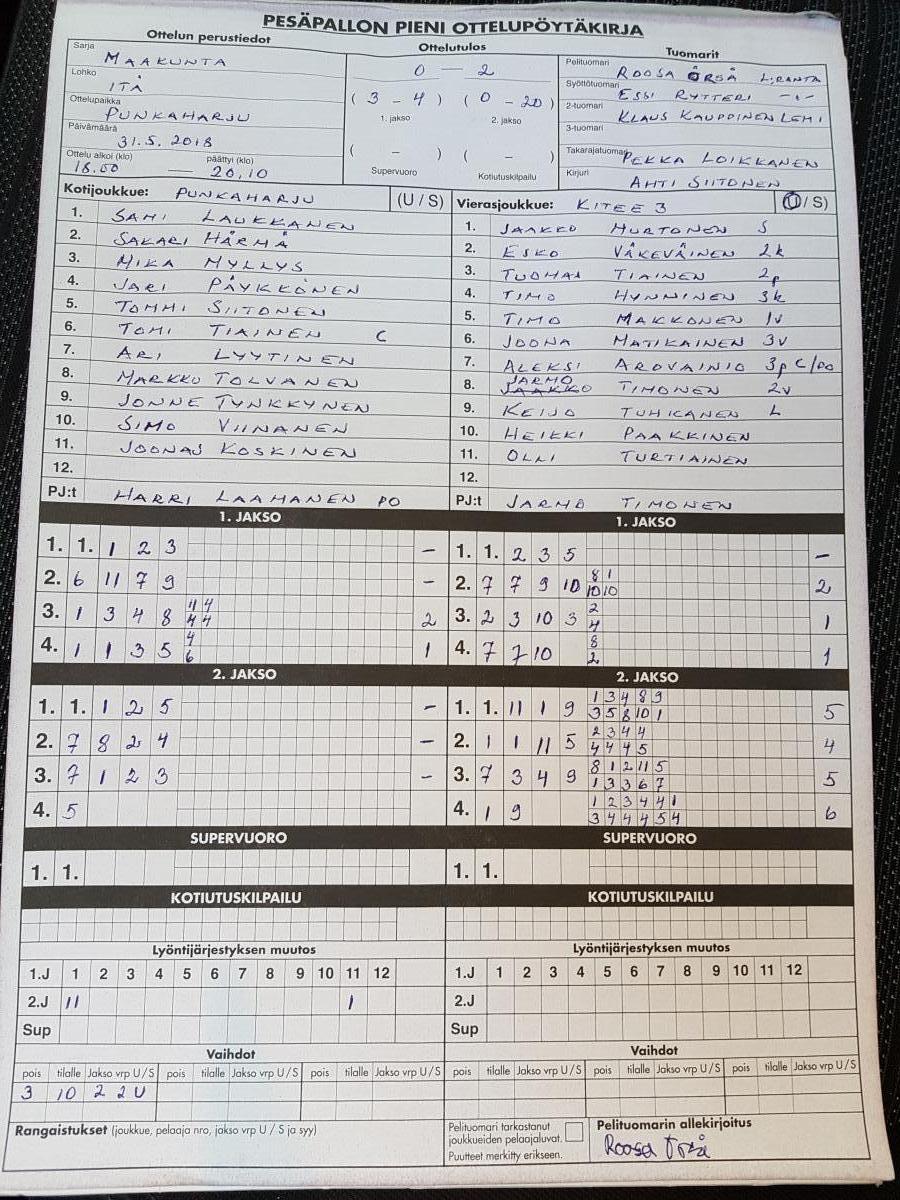 PESÄPALLON PIENI OTTELUPÖYTÄKIRJA
Ottelun perustiedot
Sarja MAAKUNTA
Lohko ITÄ
Ottelupaikka PUNKAHARJU
Päivämäärä 31.5.2018
Ottelu alkoi (klo) päättyi (klo)
18.00 — 20,10
Ottelutulos
0 — 2
(3 - 4) (0 - 20)
1. jakso 2. jakso
( - ) ( - )
Supervuoro Kotiutuskilpailu
Tuomarit
Pelituomari ROOSA ÖRSÄ L:RANTA
Syöttötuomari ESSI RYTTERI -"-
2-tuomari KLAUS KAUPPINEN LEMI
3-tuomari
Takarajatuomari PEKKA LOIKKANEN
Kirjuri AHTI SIITONEN
Kotijoukkue: PUNKAHARJU (U / S)
1. SAMI LAUKKANEN
2. SAKARI HÄRMÄ
3. MIKA MYLLYS
4. JARI PÄYKKÖNEN
5. TOMMI SIITONEN
6. TOMI TIAINEN C
7. ARI LYYTINEN
8. MARKKU TOLVANEN
9. JONNE TYNKKYNEN
10. SIMO VIINANEN
11. JOONAS KOSKINEN
12.
PJ:t HARRI LAAMANEN PO
Vierasjoukkue: KITEE 3 (U / S)
1. JAAKKO HURTONEN S
2. ESKO VÄKEVÄINEN 2k
3. TUOMAS TIAINEN 2p
4. TIMO HYNNINEN 3k
5. TIMO MAKKONEN 1v
6. JOONA MATIKAINEN 3v
7. ALEKSI AROVAINIO 3p C/po
8. JARMO JAAKKO TIMONEN 2v
9. KEIJO TUHKANEN L
10. HEIKKI PAAKKINEN
11. OLLI TURTIAINEN
12.
PJ:t JARMO TIMONEN
1. JAKSO
1. 1. 1 2 3 –
2. 6 11 7 9 –
3. 1 3 4 8 2
4. 1 1 3 5 4 1
6
1. JAKSO
1. 1. 2 3 5 –
2. 7 7 9 10 8 1 2
10 10
3. 2 3 10 3 2 1
4
4. 7 7 10 8 1
2
2. JAKSO
1. 1. 1 2 5 –
2. 7 8 2 4 –
3. 7 1 2 3 –
4. 5
2. JAKSO
1. 1. 11 1 9 1 3 4 8 9 5
3 5 8 10 1
2. 1 1 11 5 2 3 4 4 4
4 4 4 5
3. 7 3 4 9 8 1 2 11 5 5
1 3 3 6 7
4. 1 9 1 2 3 4 4 1 6
3 4 4 4 5 4
SUPERVUORO
1. 1.
SUPERVUORO
1. 1.
KOTIUTUSKILPAILU
KOTIUTUSKILPAILU
Lyöntijärjestyksen muutos
1.J 1 2 3 4 5 6 7 8 9 10 11 12
2.J 11 1
Sup
Lyöntijärjestyksen muutos
1.J 1 2 3 4 5 6 7 8 9 10 11 12
2.J
Sup
Vaihdot
pois tilalle Jakso vrp U / S pois tilalle Jakso vrp U / S pois tilalle Jakso vrp U / S
3 10 2 2 U
Vaihdot
pois tilalle Jakso vrp U / S pois tilalle Jakso vrp U / S pois tilalle Jakso vrp U / S
Rangaistukset (joukkue, pelaaja nro, jakso vrp U / S ja syy)
Pelituomari tarkastanut
joukkueiden pelaajaluvat.
Puutteet merkitty erikseen.
Pelituomarin allekirjoitus
Roosa Örsä